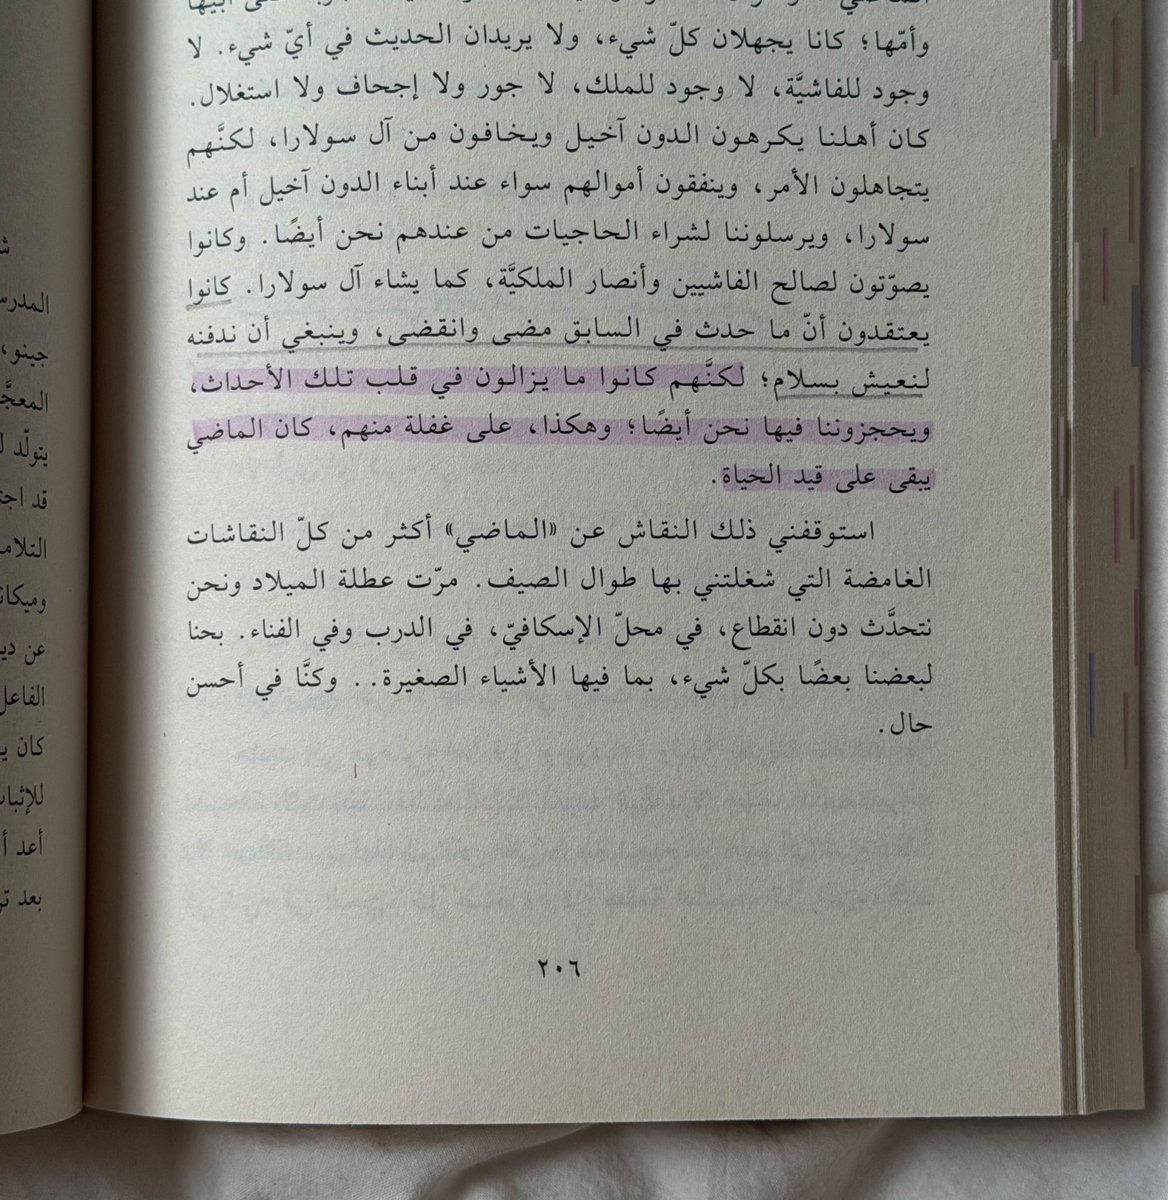 وأمّها؛ كانا يجهلان كلّ شيء، ولا يريدان الحديث في أيّ شيء. لا
وجود للفاشيَّة، لا وجود للملك، لا جور ولا إجحاف ولا استغلال.
كان أهلنا يكرهون الدون آخيل ويخافون من آل سولارا، لكنَّهم
يتجاهلون الأمر، وينفقون أموالهم سواء عند أبناء الدون آخيل أم عند
سولارا، ويرسلوننا لشراء الحاجيات من عندهم نحن أيضًا. وكانوا
يصوّتون لصالح الفاشيين وأنصار الملكيَّة، كما يشاء آل سولارا. كانوا
يعتقدون أنّ ما حدث في السابق مضى وانقضى، وينبغي أن ندفنه
لنعيش بسلام؛ لكنَّهم كانوا ما يزالون في قلب تلك الأحداث،
ويحجزوننا فيها نحن أيضًا؛ وهكذا، على غفلة منهم، كان الماضي
يبقى على قيد الحياة.
استوقفني ذلك النقاش عن «الماضي» أكثر من كلّ النقاشات
الغامضة التي شغلتني بها طوال الصيف. مرّت عطلة الميلاد ونحن
نتحدَّث دون انقطاع، في محلّ الإسكافيّ، في الدرب وفي الفناء. بحنا
لبعضنا بعضًا بكلّ شيء، بما فيها الأشياء الصغيرة.. وكنَّا في أحسن
حال.
٢٠٦
جينو،
يتولّد
عن
كان
بعد